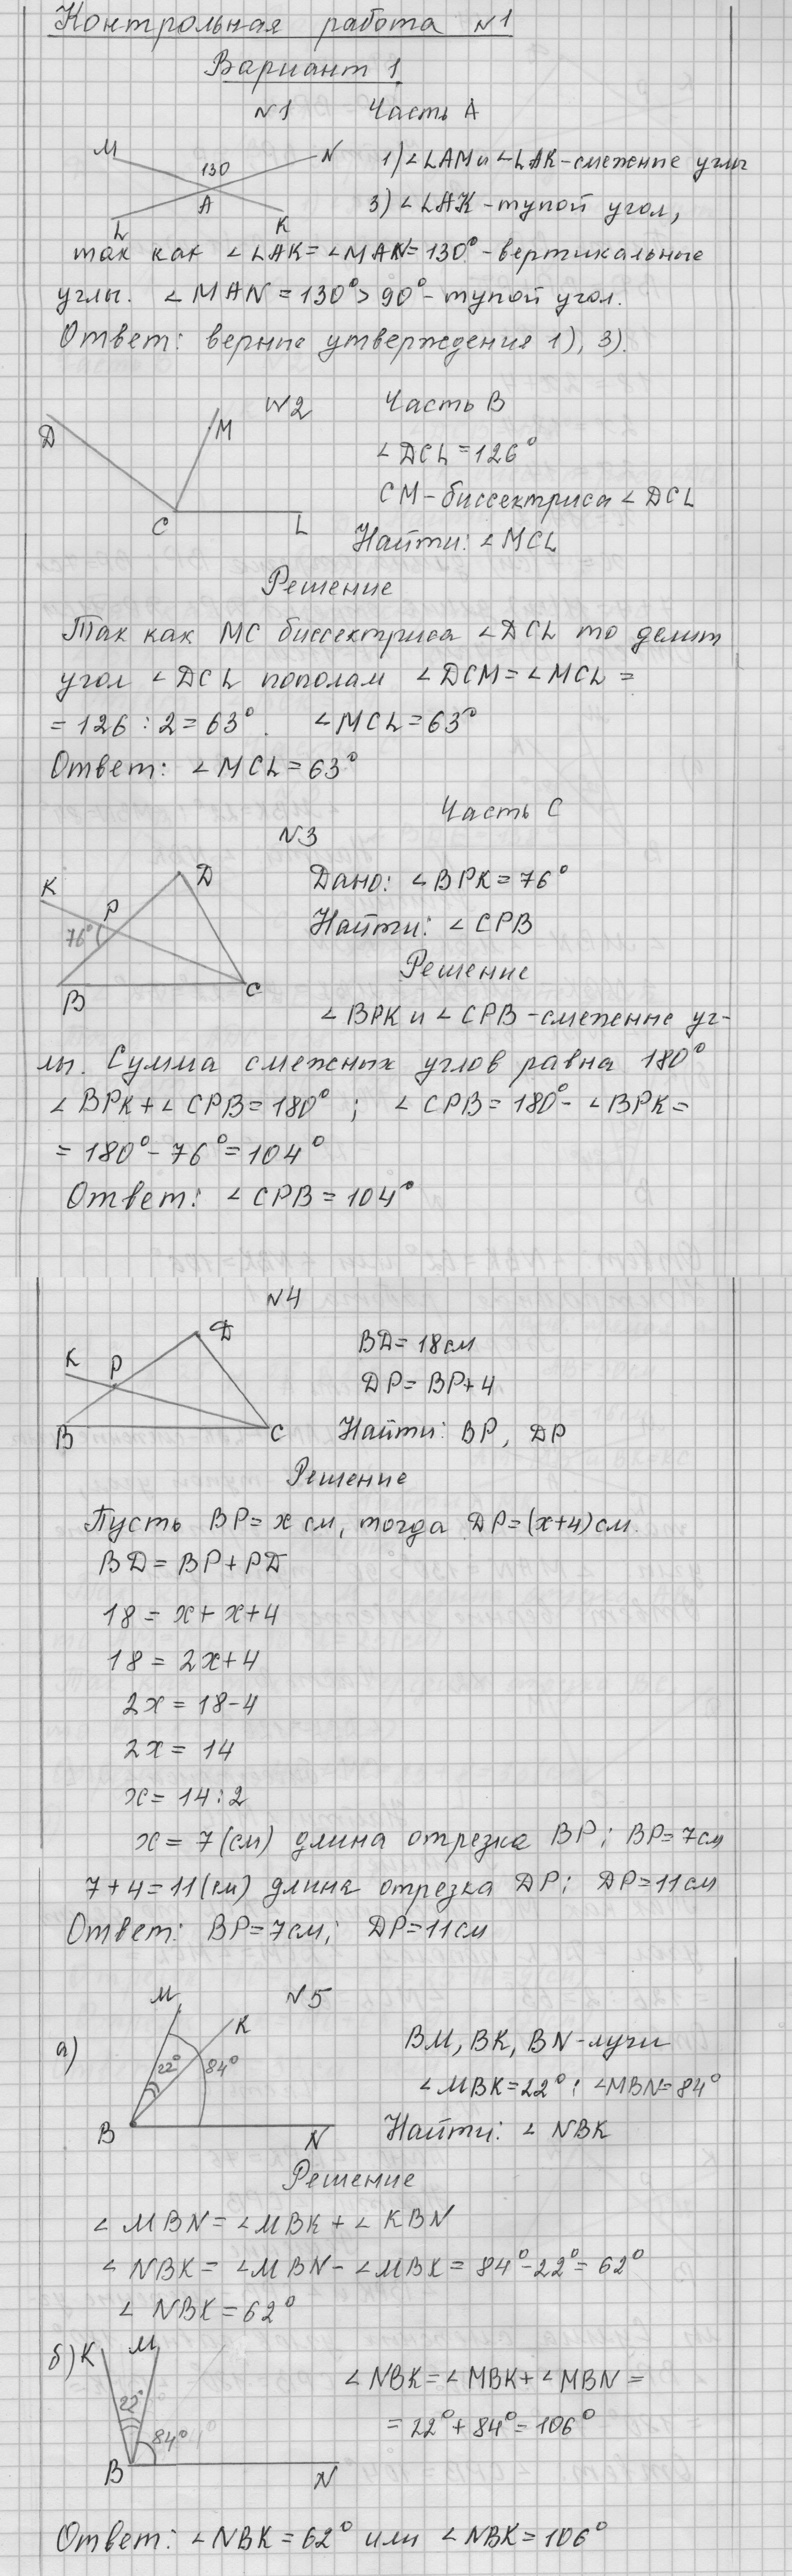 Контрольная работа №1
Вариант 1
№1 Часть А
M 130 N 1) ∠LAM и ∠LAK - смежные углы
L A K 3) ∠LAK - тупой угол,
так как ∠LAK = ∠MAN = 130° - вертикальные
углы. ∠MAN = 130° > 90° - тупой угол.
Ответ: верные утверждения 1), 3).
№2 Часть В
D M ∠DCL = 126°
CM - биссектриса ∠DCL
C L Найти: ∠MCL
Решение
Так как MC биссектриса ∠DCL то делит
угол ∠DCL пополам ∠DCM = ∠MCL =
= 126 : 2 = 63°. ∠MCL = 63°
Ответ: ∠MCL = 63°
Часть С
№3
K P D Дано: ∠BPK = 76°
76° Найти: ∠CPB
B C Решение
∠BPK и ∠CPB - смежные уг-
лы. Сумма смежных углов равна 180°
∠BPK + ∠CPB = 180° ; ∠CPB = 180° - ∠BPK =
= 180° - 76° = 104°
Ответ: ∠CPB = 104°
№4
D BD = 18 см
K P DP = BP + 4
B C Найти: BP, DP
Решение
Пусть BP = x см, тогда DP = (x+4) см.
BD = BP + PD
18 = x + x + 4
18 = 2x + 4
2x = 18 - 4
2x = 14
x = 14 : 2
x = 7 (см) длина отрезка BP; BP = 7 см
7 + 4 = 11 (см) длина отрезка DP; DP = 11 см
Ответ: BP = 7 см; DP = 11 см
№5
M K BM, BK, BN - лучи
а) 22° 84° ∠MBK = 22°; ∠MBN = 84°
B N Найти: ∠NBK
Решение
∠MBN = ∠MBK + ∠KBN
∠NBK = ∠MBN - ∠MBK = 84° - 22° = 62°
∠NBK = 62°
б) K M ∠NBK = ∠MBK + ∠MBN =
22° 84° = 22° + 84° = 106°
B N
Ответ: ∠NBK = 62° или ∠NBK = 106°